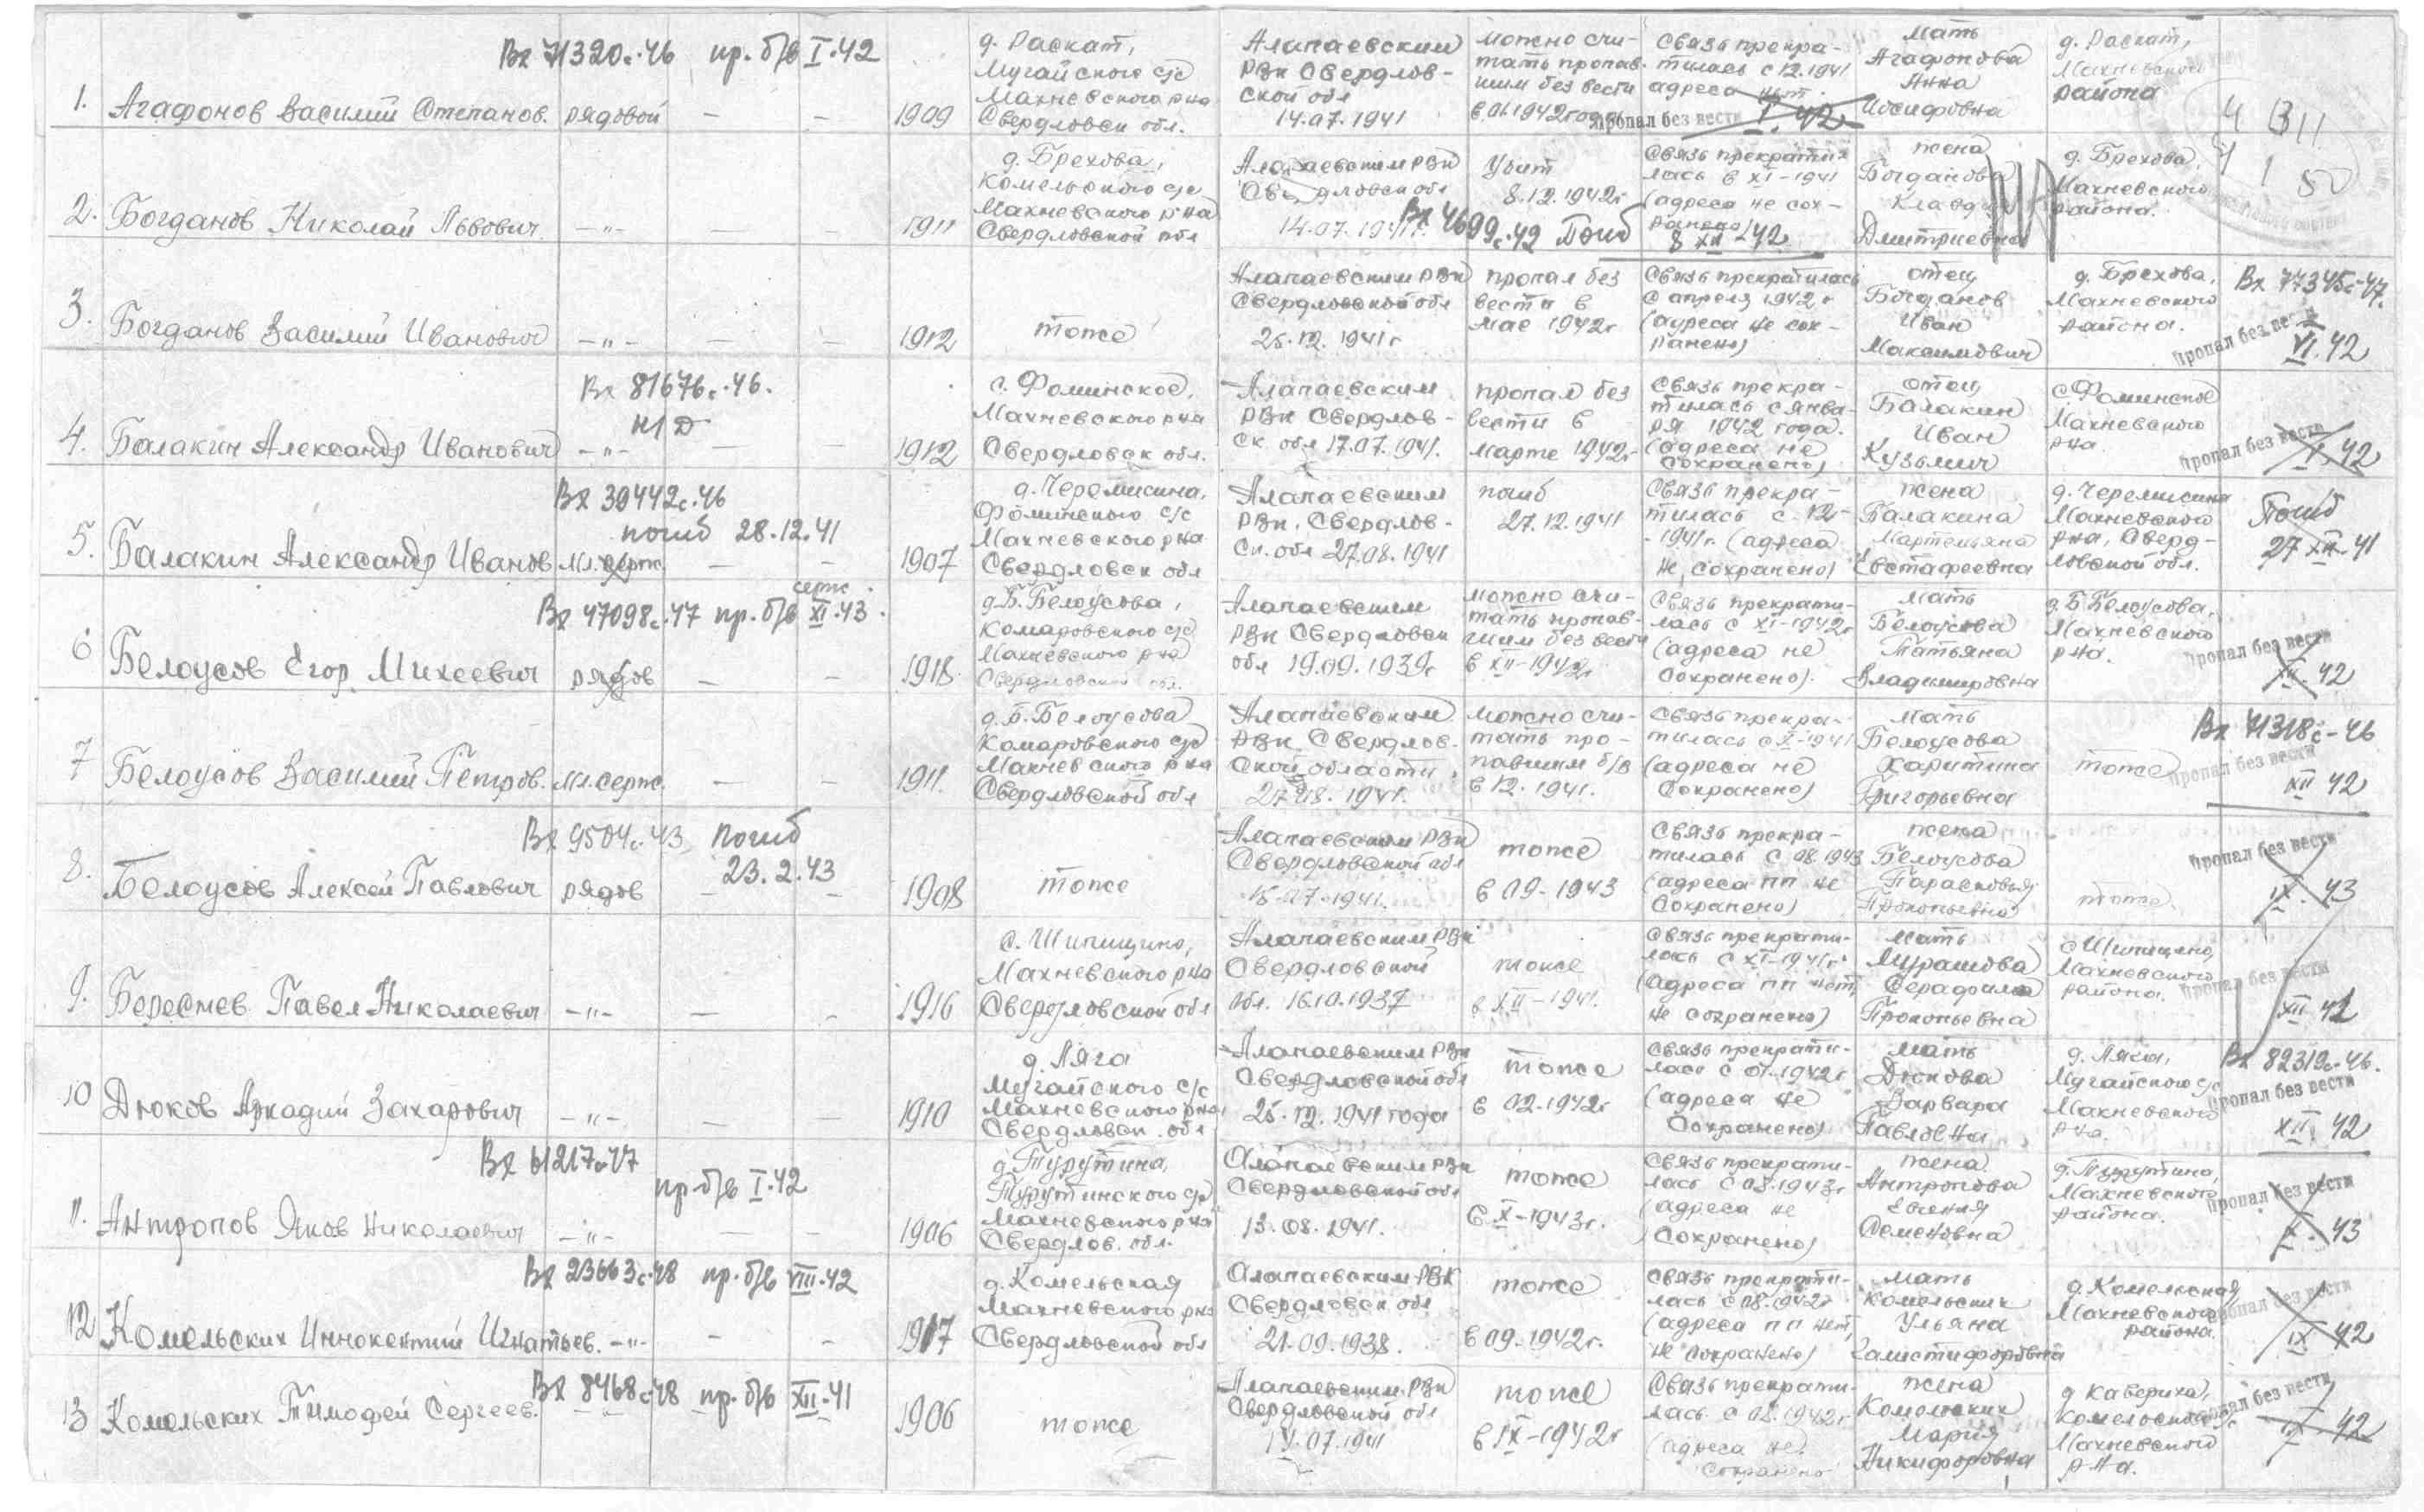 Вх 71320с-46 пр. б/в I.42
1. Агафонов Василий Степанов. рядовой — — 1909
д. Раскат,
Мугайского с/с
Махневского р-на
Свердловск обл.
Алапаевским
РВК Свердлов-
ской обл
14.07.1941
можно счи-
тать пропав-
шим без вести
в 01.1942 года
Связь прекра-
тилась с 12.1941
адреса нет.
Пропал без вести I.42
мать
Агафонова
Анна
Иосифовна
д. Раскат,
Махневского
района
2. Богданов Николай Львович. —"— — — 1911
д. Брехова,
Комельского с/с
Махневского р-на
Свердловской обл
Алапаевским РВК
Свердловск обл
14.07.1941г.
Убит
8.12.1942г
Вх 4699с-42 Погиб 8 XII-42
Связь прекрати-
лась в XI-1941
(адреса не сох-
ранено)
жена
Богданова
Клавдия
Дмитриевна
д. Брехова,
Махневского
района.
3. Богданов Василий Иванович —"— — — 1912
тоже
Алапаевским РВК
Свердловской обл
25.12.1941г
пропал без
вести в
мае 1942г
Связь прекратилась
с апреля 1942г
(адреса не сох-
ранено)
отец
Богданов
Иван
Максимович
д. Брехова,
Махневского
района.
Вх 77345с-47.
Пропал без вести
VI.42
Вх 81676с-46.
4. Балакин Александр Иванович —"— — — 1912
с. Фоминское,
Махневского р-на
Свердловск обл.
Алапаевским
РВК Свердлов-
ск. обл 17.07.1941.
пропал без
вести в
марте 1942г
Связь прекра-
тилась с янва-
ря 1942 года.
(адреса не
сохранено)
отец
Балакин
Иван
Кузьмич
с Фоминское
Махневского
р-на
Пропал без вести
42
Вх 30442с-46
погиб 28.12.41
5. Балакин Александр Иванов мл. серж. — — 1907
д. Черемисина,
Фоминского с/с
Махневского р-на
Свердловск обл
Алапаевским
РВК. Свердлов-
ск. обл 27.08.1941
погиб
27.12.1941
Связь прекра-
тилась с 12-
-1941г. (адреса
не сохранено)
жена
Балакина
Мартемьяна
Евстафеевна
д. Черемисина
Махневского
р-на, Сверд-
ловской обл.
Погиб
27 XII-41
серж.
Вх 47098с-47 пр. б/в XI.43.
6 Белоусов Егор Михеевич рядов — — 1918
д. Б. Белоусова,
Комаровского с/с
Махневского р-на
Свердловской обл.
Алапаевским
РВК Свердловск
обл 19.09.1939г
можно счи-
тать пропав-
шим без вести
в XII-1942г
Связь прекрати-
лась с XI-1942г
(адреса не
сохранено).
мать
Белоусова
Татьяна
Владимировна
д. Б Белоусова,
Махневского
р-на.
Пропал без вести
XII.42
7 Белоусов Василий Петров. мл. серж. — — 1911.
д. Б. Белоусова
Комаровского с/с
Махневского р-на
Свердловской обл
Алапаевским
РВК. Свердлов-
ской области,
27.08.1941.
можно счи-
тать про-
павшим б/в
в 12.1941.
Связь прекра-
тилась с X-1941
(адреса не
сохранено)
мать
Белоусова
Харитина
Григорьевна
тоже
Вх 71318с-46
Пропал без вести
XII 42
Вх 9504с-43 погиб
23.2.43
8. Белоусов Алексей Павлович рядов — — 1908
тоже
Алапаевским РВК
Свердловской обл
15.07.1941.
тоже
в 09-1943
Связь прекра-
тилась с 08.1943
(адреса пп не
сохранено)
жена
Белоусова
Парасковья
Прокопьевна
тоже
Пропал без вести
IX.43
9. Берестнев Павел Николаевич —"— — — 1916
с. Шипицино,
Махневского р-на
Свердловской обл
Алапаевским РВК
Свердловской
обл. 16.10.1937
тоже
в XII-1941.
Связь прекрати-
лась с XI-1941г
(адреса пп нет,
не сохранено)
мать
Мурашова
Серафима
Прокопьевна
с Шипицино,
Махневского
района.
Пропал без вести
XII 41
10 Дюков Аркадий Захарович —"— — — 1910
д. Ляга
Мугайского с/с
Махневского р-на
Свердловск. обл
Алапаевским РВК
Свердловской обл
25.12.1941 года
тоже
в 02.1942г
Связь прекрати-
лась с 01.1942г
(адреса не
сохранено)
мать
Дюкова
Варвара
Павловна
д. Ляга,
Мугайского с/с
Махневского
р-на.
Вх 82319с-46.
Пропал без вести
XII.42
Вх 61217с-47
пр б/в I.42
11. Антропов Яков Николаевич —"— — — 1906
д. Турутина,
Турутинского с/с
Махневского р-на
Свердлов. обл.
Алапаевским РВК
Свердловской обл
13.08.1941.
тоже
в X-1943г.
Связь прекрати-
лась с 08.1943г
(адреса не
сохранено)
жена
Антропова
Евгения
Семеновна
д. Турутина,
Махневского
района.
Пропал без вести
X.43
Вх 23663с-48 пр. б/в VIII.42
12 Комельских Иннокентий Игнатьев. —"— — — 1917
д. Комельская
Махневского р-на
Свердловской обл
Алапаевским РВК
Свердловск. обл
21.09.1938.
тоже
в 09.1942г.
Связь прекрати-
лась с 08.1942г
(адреса пп нет,
не сохранено)
мать
Комельских
Ульяна
д. Комельская,
Махневского
района.
Пропал без вести
IX 42
Вх 8468с-48 пр. б/в XII-41
13 Комельских Тимофей Сергеев. 1906
тоже
Алапаевским РВК
Свердловской обл
14.07.1941
тоже
в IX-1942г
Связь прекрати-
лась с 08.1942г
(адреса не
сохранено
жена
Комельских
Мария
Никифоровна
д Кавериха,
Комельского с/с
Махневского
р-на.
Пропал без вести
42